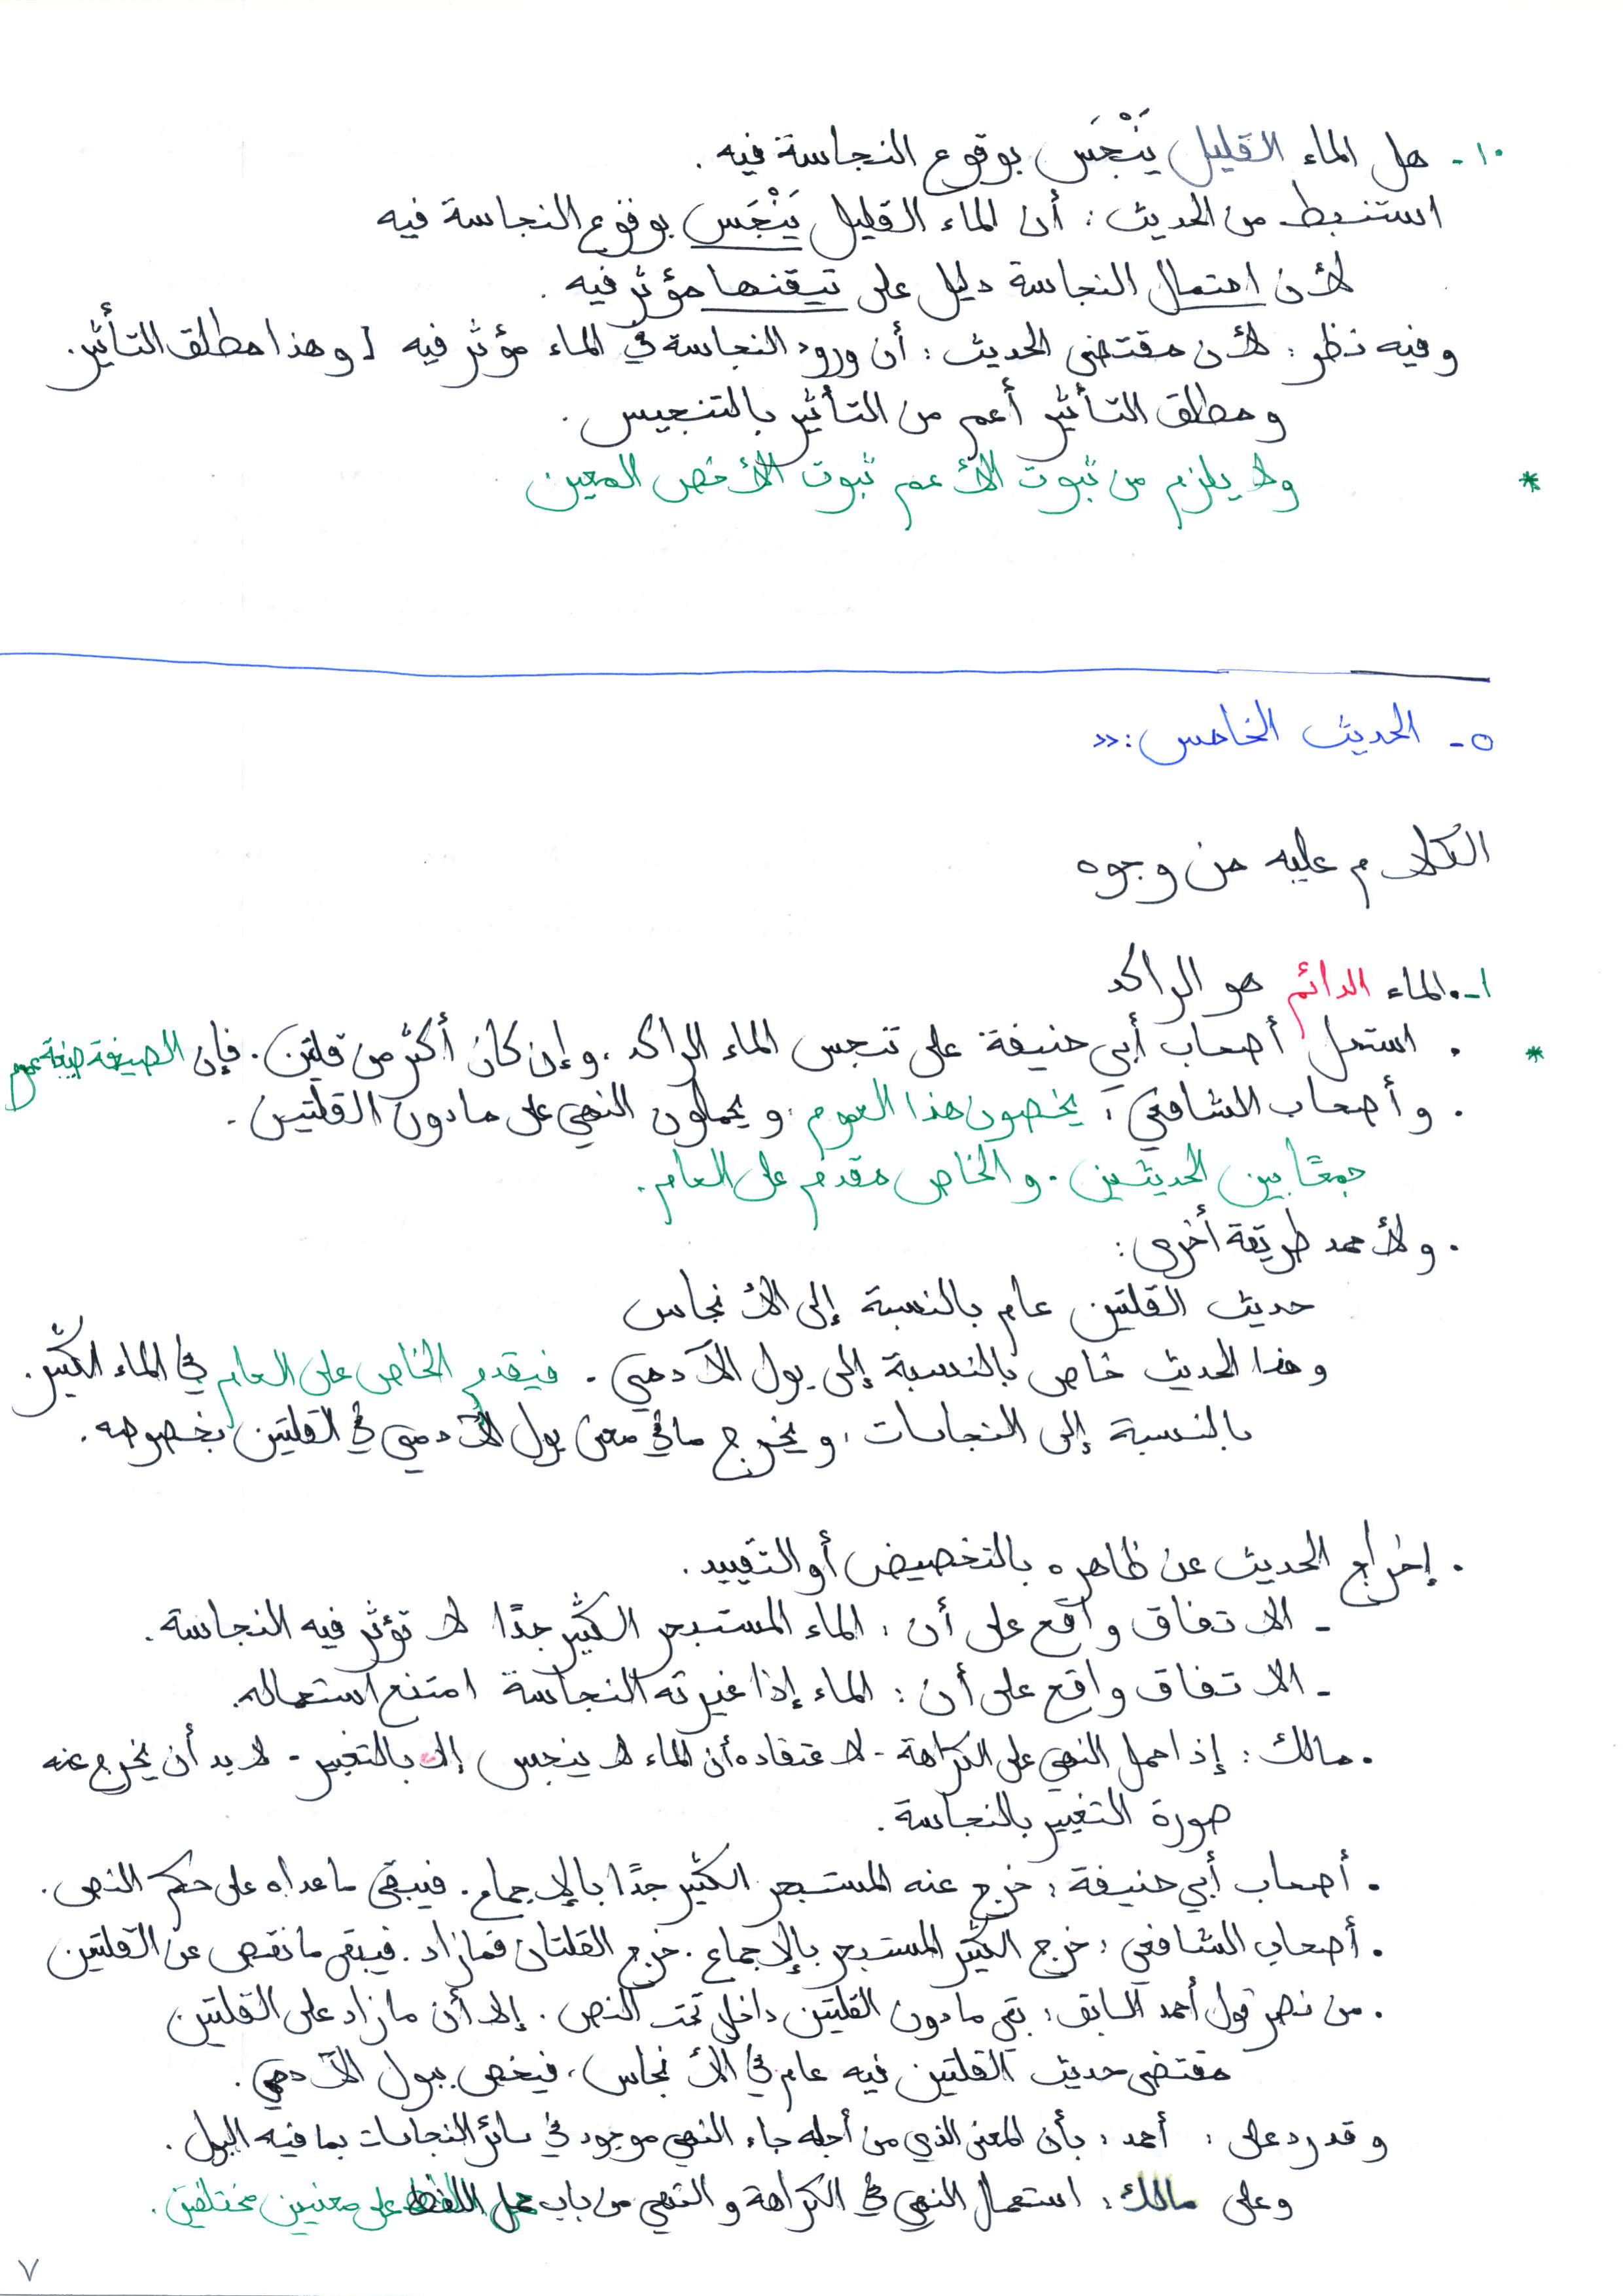 ١٠- هل الماء القليل يَنْجَس بوقوع النجاسة فيه.
استنبط من الحديث: أن الماء القليل يَنْجَس بوقوع النجاسة فيه
لأن احتمال النجاسة دليل على تيقنها مؤثر فيه.
وفيه نظر: لأن مقتضى الحديث: أن ورود النجاسة في الماء مؤثر فيه [وهذا مطلق التأثير.
ومطلق التأثير أعم من التأثير بالتنجيس.
* ولا يلزم من ثبوت الأعم ثبوت الأخص المعين
٥- الحديث الخامس: «
الكلام عليه من وجوه
١-. الماء الدائم هو الراكد
* . استدل أصحاب أبي حنيفة على تنجس الماء الراكد، وإن كان أكثر من قلتين. فإن الصيغة صيغة عموم
. وأصحاب الشافعي: يخصون هذا العموم، ويحملون النهي على ما دون القلتين.
جمعًا بين الحديثين. والخاص مقدم على العام.
. ولأحمد طريقة أخرى:
حديث القلتين عام بالنسبة إلى الأنجاس
وهذا الحديث خاص بالنسبة إلى بول الآدمي. فيقدم الخاص على العام في الماء الكثير.
بالنسبة إلى النجاسات، ويخرج ما في معنى بول الآدمي في القلتين بخصوصه.
. إخراج الحديث عن ظاهره بالتخصيص أو التقييد.
- الاتفاق واقع على أن: الماء المستبحر الكثير جدًا لا تؤثر فيه النجاسة.
- الاتفاق واقع على أن: الماء إذا غيرته النجاسة امتنع استعماله.
. مالك: إذا حمل النهي على الكراهة - لاعتقاده أن الماء لا ينجس إلا بالتغير - لا بد أن يخرج عنه
صورة التغيير بالنجاسة.
. أصحاب أبي حنيفة: خرج عنه المستبحر الكثير جدًا بالإجماع. فيبقى ما عداه على حكم النص.
. أصحاب الشافعي: خرج الكثير المستبحر بالإجماع. خرج القلتان فما زاد. فيبقى ما نقص عن القلتين
. من نصر قول أحمد السابق: بقي ما دون القلتين داخل تحت النص. إلا أن ما زاد على القلتين
مقتضى حديث القلتين فيه عام في الأنجاس، فيخص ببول الآدمي.
وقد رد على: أحمد: بأن المعنى الذي من أجله جاء النهي موجود في سائر النجاسات بما فيه البول.
وعلى مالك: استعمال النهي في الكراهة والنهي من باب حمل اللفظ على معنيين مختلفين.
٧